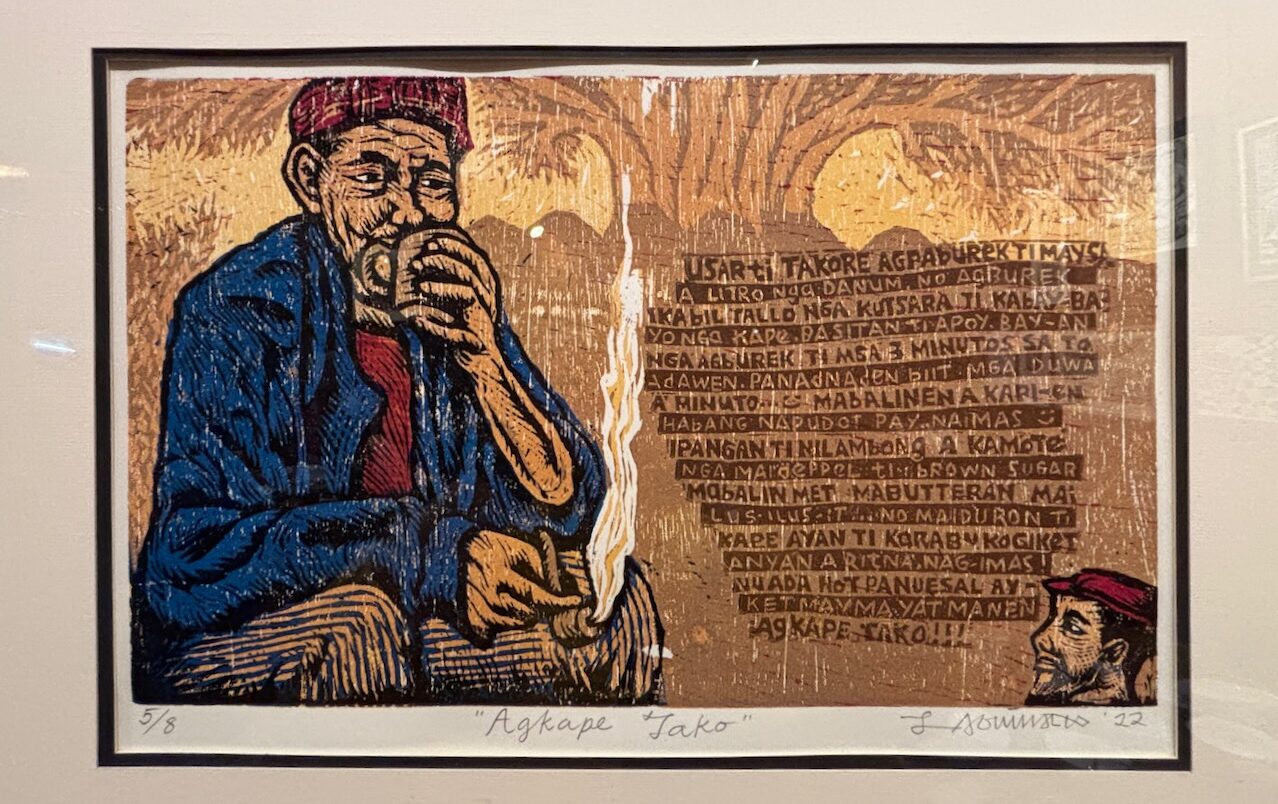 USAR ti TAKORE AGPABUREK TI MAYSA
A LITRO NgA DANUM. NO AGBUREK
IKABIL TALLO NGA KUTSARA TI KABAY-BA
YO NGA KAPE. BASITAN ti APOY. BAY-AN
NGA AGBUREK TI MGA 3 MINUTOS SA TO
ADAWEN. PANADNADEN BIIT MGA DUWA
A MINUTO... MABALINEN A KAPI-EN
HABANG NAPUDOT PAY. NAIMAS
IPANGAN TI NILAMBONG A KAMOTE
NGA ti BROWN SUGAR
MABALIN MET MABUTTERAN MAI
NO MAIDURON TI
KAPE AYAN TI
ANYAN A RICNA. NAG-IMAS!
NU ADA HOT PANDESAL AY-
KET MAYMAYAT MANEN
AGKAPE TAKO!!!
5/8
"Agkape Tako"
'22